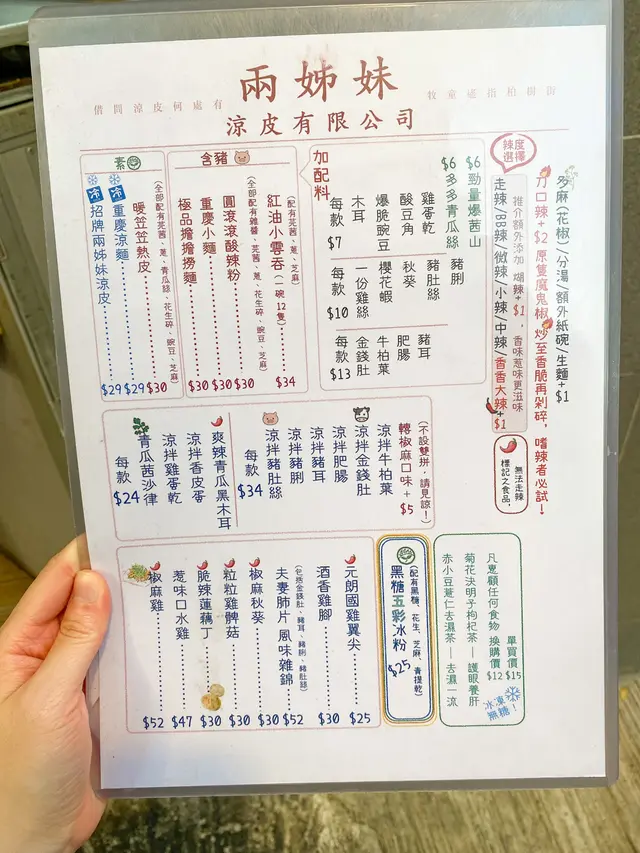 借問涼皮何處有
兩姊妹
牧童遙指柏樹街
涼皮有限公司
辣度選擇
多麻(花椒)/分湯/額外紙碗/生麵+$1
刀口辣+$2 原隻魔鬼椒,炒至香脆再剁碎,嗜辣者必試!
推介額外添加 煳辣+$1,香味惹味更滋味
走辣/BB辣/微辣/小辣/中辣/香香大辣+$1
無法走辣
標記之食品,
加配料
$6 勁量爆茜山
$6 多多青瓜絲
雞蛋乾
酸豆角
爆脆豌豆
木耳
每款$7
豬脷
豬肚絲
秋葵
櫻花蝦
一份雞絲
每款$10
豬耳
肥腸
牛柏葉
金錢肚
每款$13
含豬
(配有芫茜、蔥、芝麻)
紅油小雲吞(一碗12隻) $34
(全部配有雜醬、芫茜、蔥、花生碎、豌豆、芝麻)
圓滾滾酸辣粉 $30
重慶小麵 $30
極品擔擔撈麵 $30
素
(全部配有芫茜、蔥、青瓜絲、花生碎、豌豆、芝麻)
暖笠笠熱皮 $30
冷 重慶涼麵 $29
冷 招牌兩姊妹涼皮 $29
(不設雙拼,請見諒!)
轉椒麻口味+$5
涼拌牛柏葉
涼拌金錢肚
涼拌肥腸
涼拌豬耳
涼拌豬脷
涼拌豬肚絲
每款$34
爽辣青瓜黑木耳
涼拌香皮蛋
涼拌雞蛋乾
青瓜茜沙律
每款$24
單買價$15
凡惠顧任何食物 換購價$12
菊花決明子枸杞茶—護眼養肝
赤小豆薏仁去濕茶—去濕一流
冰凍無糖!
(配有黑糖、花生、芝麻、青提乾)
黑糖五彩冰粉
$25
元朗國雞翼尖 $25
酒香雞腳 $30
(包括金錢肚、豬耳、豬脷、豬肚絲)
夫妻肺片 風味雜錦 $52
椒麻秋葵 $30
粒粒雞髀菇 $30
脆辣蓮藕丁 $30
惹味口水雞 $47
椒麻雞 $52